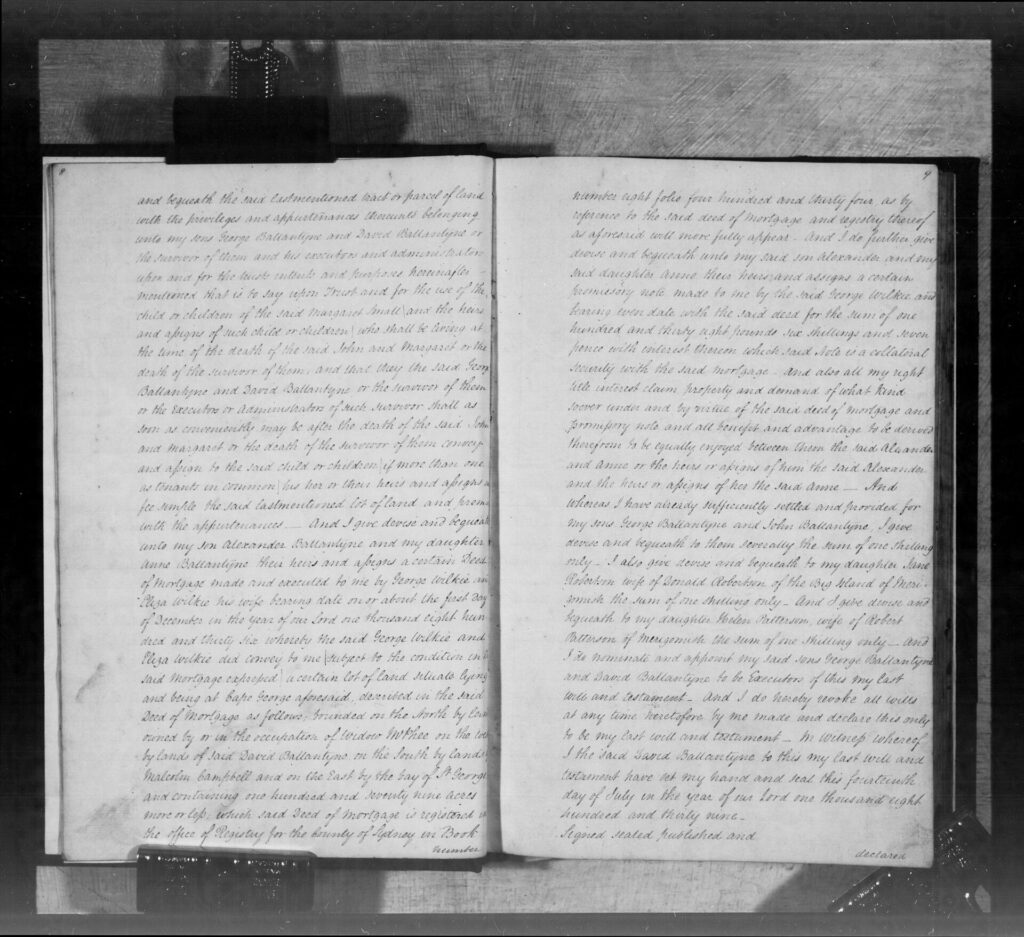 8
and bequeath the said lastmentioned tract or parcel of land
with the privileges and appurtenances thereunto belonging
unto my sons George Ballantyne and David Ballantyne or
the survivor of them and his executors and administrators
upon and for the trusts intents and purposes hereinafter
mentioned that is to say upon Trust and for the use of the
child or children of the said Margaret Small and the heirs
and assigns of such child or children who shall be living at
the time of the death of the said John and Margaret or the
death of the survivor of them, and that they the said George
Ballantyne and David Ballantyne or the survivor of them
or the Executors or Administrators of such survivor shall as
soon as conveniently may be after the death of the said John
and Margaret or the death of the survivor of them convey
and assign to the said child or children (if more than one
as tenants in common) his her or their heirs and assigns in
fee simple the said lastmentioned lot of land and prem
with the appurtenances — And I give devise and bequeath
unto my son Alexander Ballantyne and my daughter
Anne Ballantyne their heirs and assigns a certain Deed
of Mortgage made and executed to me by George Wilkie an
Eliza Wilkie his wife bearing date on or about the first Day
of December in the year of our Lord one thousand eight hun
dred and thirty six whereby the said George Wilkie and
Eliza Wilkie did convey to me (subject to the condition in
said Mortgage expressed) a certain lot of land situate lying
and being at Cape George aforesaid, described in the said
Deed of Mortgage as follows, bounded on the North by lan
owned by or in the occupation of Widow McPhee on the
by lands of said David Ballantyne on the South by lands
Malcolm Campbell and on the East by the bay of St. George
and containing one hundred and seventy nine acres
more or less, which said Deed of Mortgage is registered in
the office of Registry for the County of Sydney in Book
number
9
number eight folio four hundred and thirty four, as by
reference to the said deed of mortgage and registry thereof
as aforesaid will more fully appear - And I do further give
devise and bequeath unto my said son Alexander and my
said daughter Anne their heirs and assigns a certain
promissory note made to me by the said George Wilkie and
bearing even date with the said deed for the sum of one
hundred and thirty eight pounds six shillings and seven
pence with interest thereon which said Note is a collateral
security with the said mortgage - and also all my right
title interest claim property and demand of what kind
soever under and by virtue of the said deed of mortgage and
promissory note and all benefit and advantage to be derived
therefrom to be equally enjoyed between them the said Alexander
and Anne or the heirs or assigns of him the said Alexander
and the heirs or assigns of her the said Anne — And
whereas I have already sufficiently settled and provided for
my sons George Ballantyne and John Ballantyne, I give
devise and bequeath to them severally the sum of one shilling
only - I also give devise and bequeath to my daughter Jane
Robertson wife of Donald Robertson of the Big Island of Meri-
gomish the sum of one shilling only - And I give devise and
bequeath to my daughter Helen Patterson, wife of Robert
Patterson of Merigomish the sum of one shilling only - And
I do nominate and appoint my said sons George Ballantyne
and David Ballantyne to be Executors of this my last
will and testament - And I do hereby revoke all wills
at any time heretofore by me made and declare this only
to be my last will and testament - In witness whereof
I the said David Ballantyne to this my last will and
testament have set my hand and seal this fourteenth
day of July in the year of our Lord one thousand eight
hundred and thirty nine -
Signed sealed published and
declared